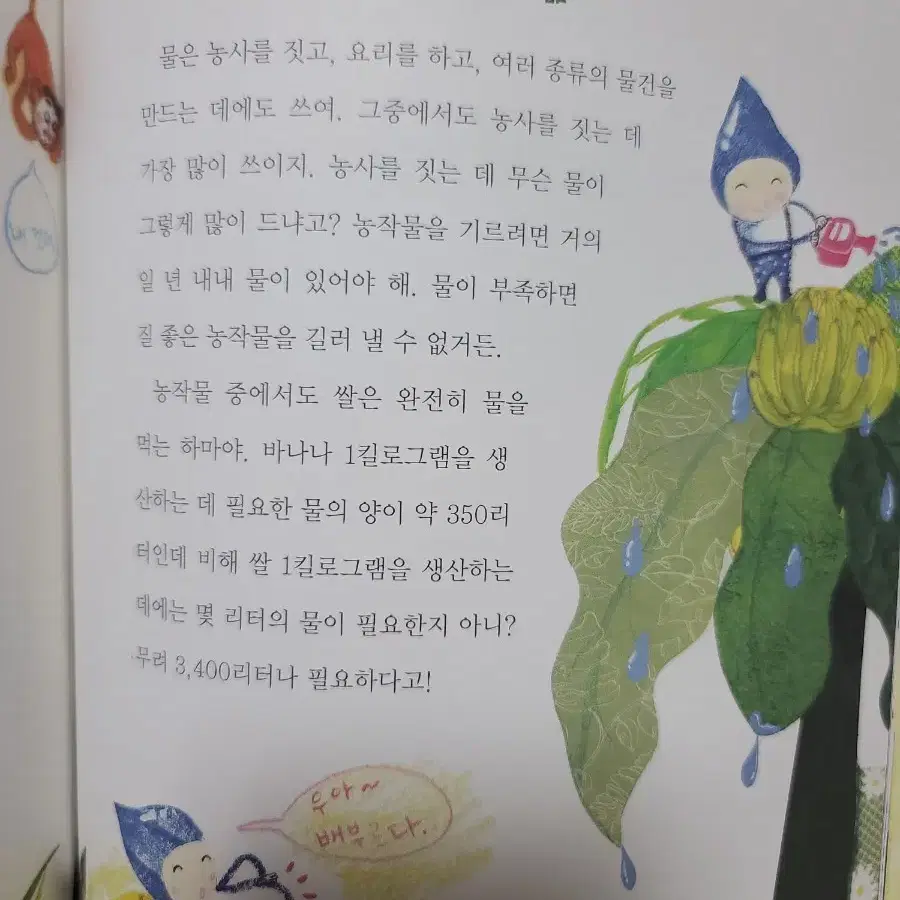 물은 농사를 짓고, 요리를 하고, 여러 종류의 물건을
만드는 데에도 쓰여. 그중에서도 농사를 짓는 데
가장 많이 쓰이지. 농사를 짓는 데 무슨 물이
그렇게 많이 드냐고? 농작물을 기르려면 거의
일 년 내내 물이 있어야 해. 물이 부족하면
질 좋은 농작물을 길러 낼 수 없거든.
농작물 중에서도 쌀은 완전히 물을
먹는 하마야. 바나나 1킬로그램을 생
산하는 데 필요한 물의 양이 약 350리
터인데 비해 쌀 1킬로그램을 생산하는
데에는 몇 리터의 물이 필요한지 아니?
무려 3,400리터나 필요하다고!
우아~
배부르다.